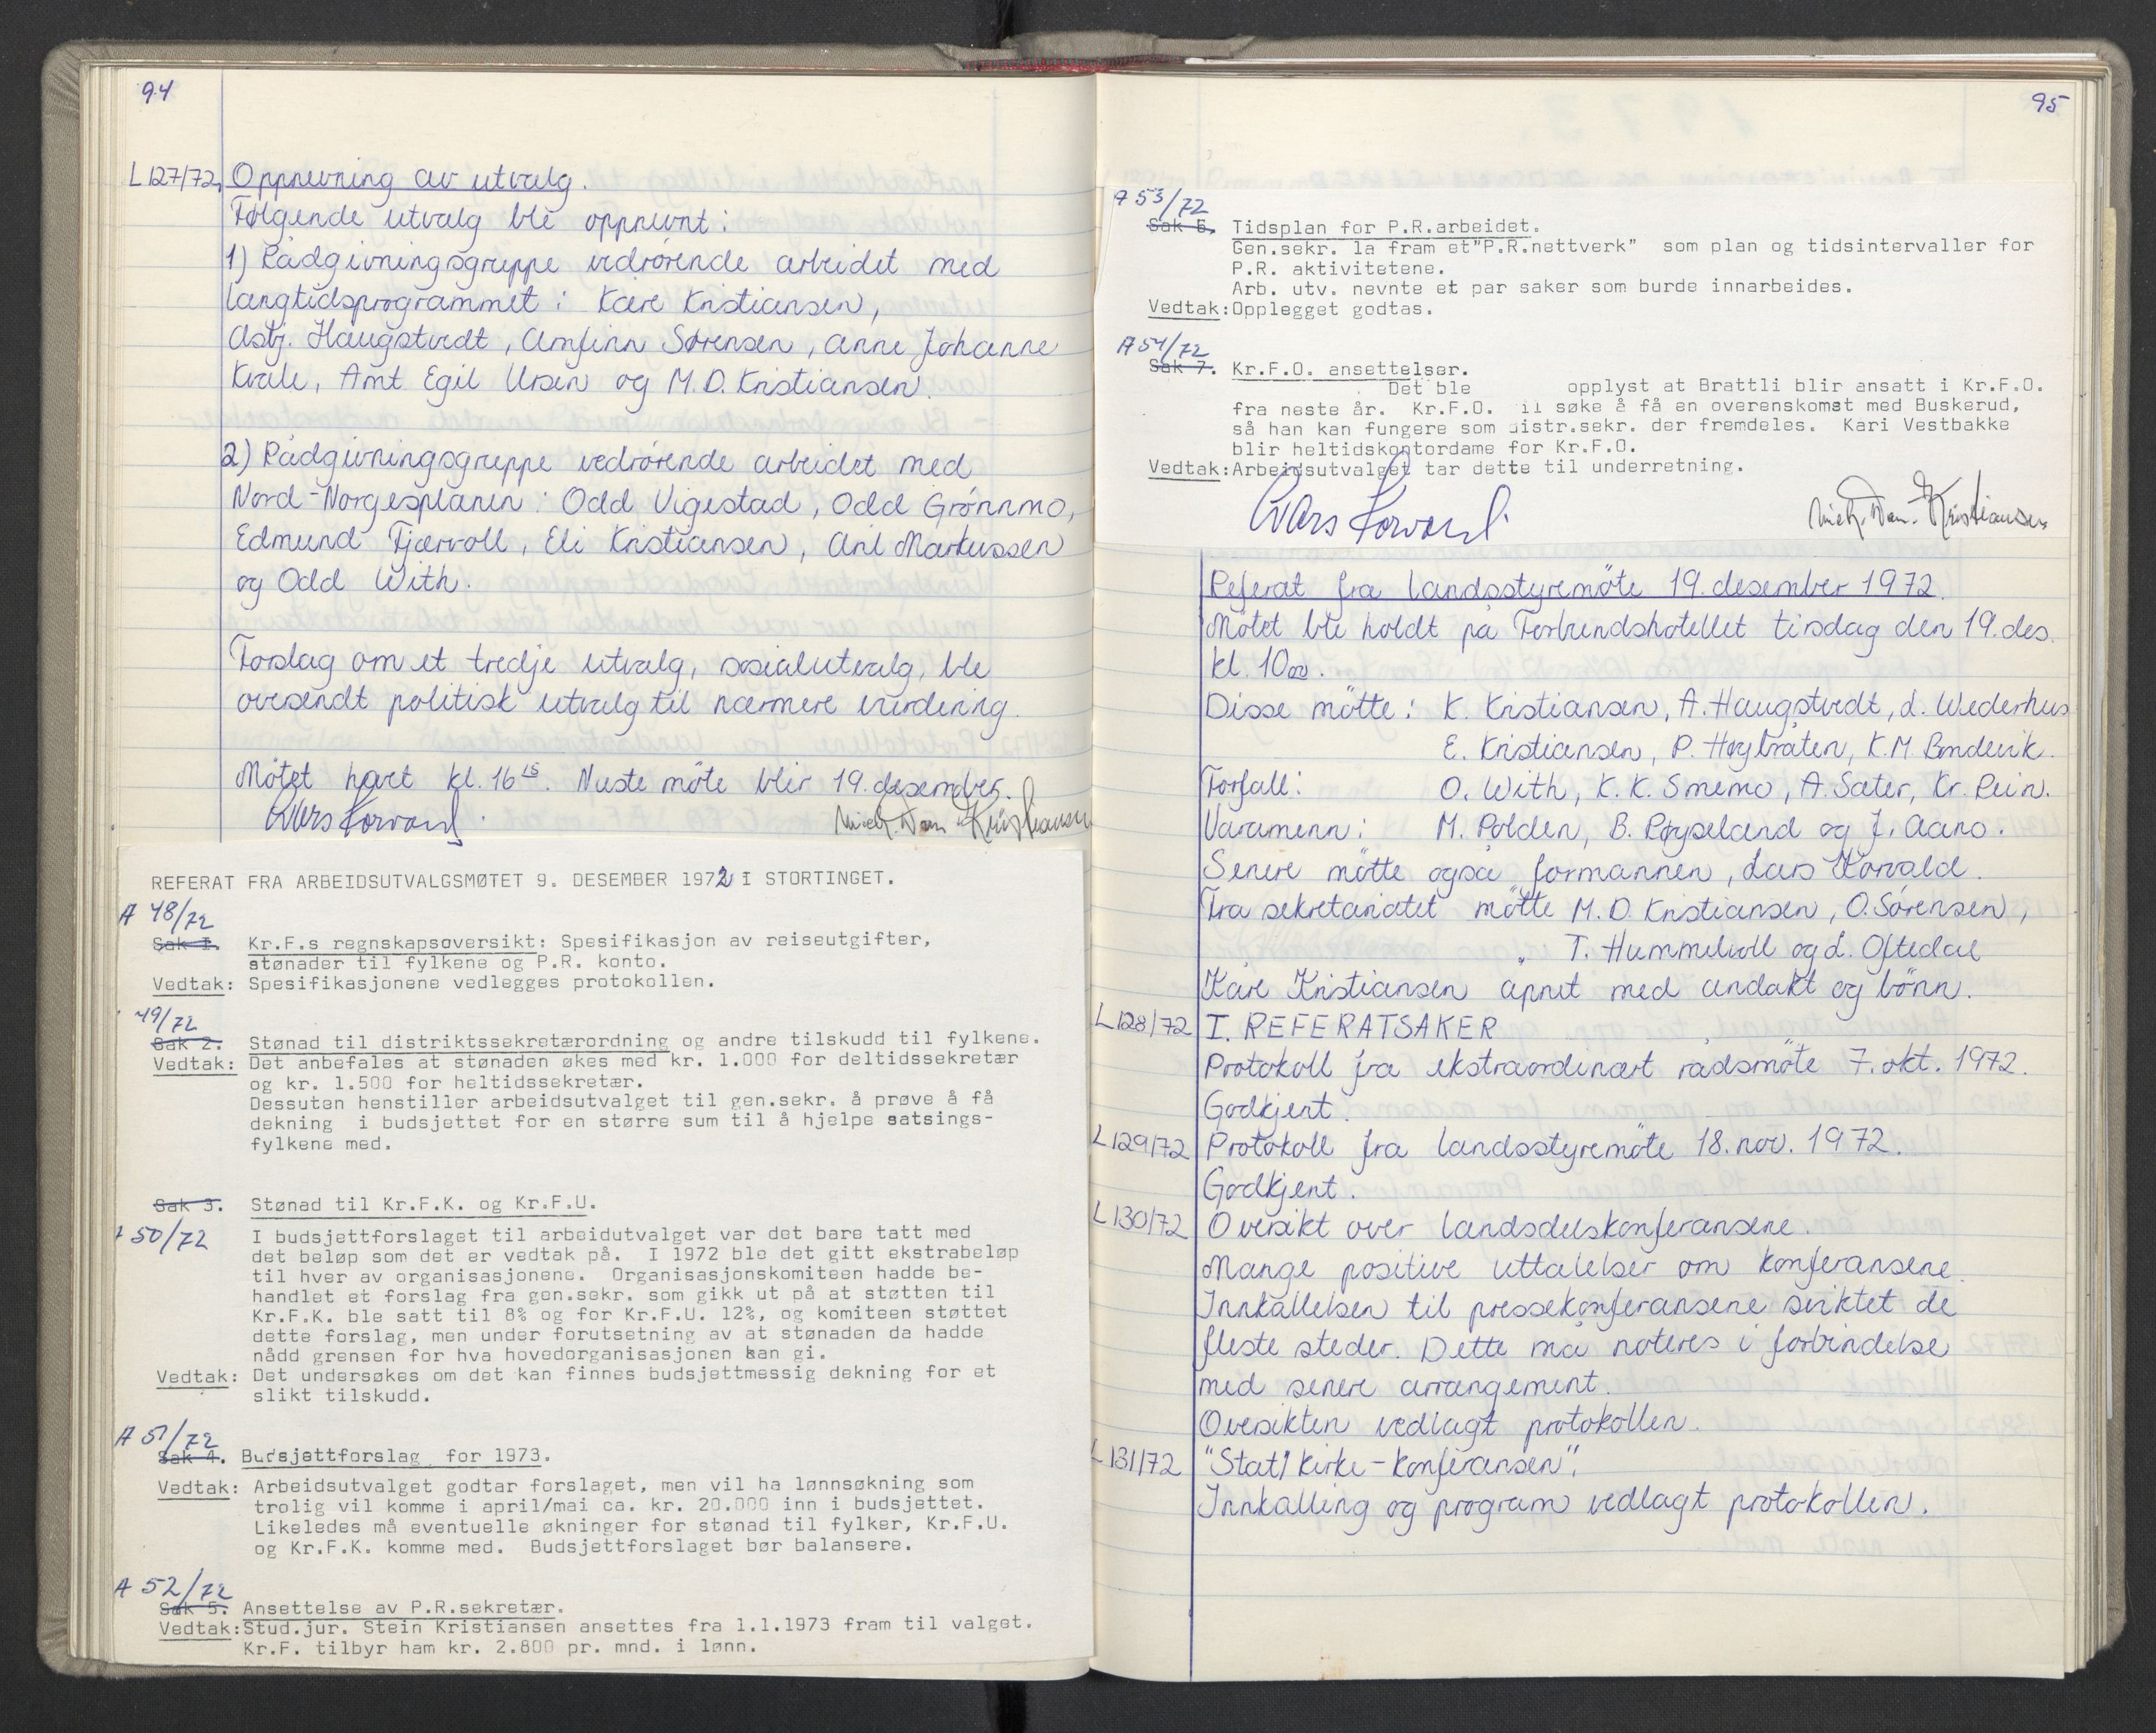 94
L 127/72. Oppnevning av utvalg.
Følgende utvalg ble oppnevnt:
1) Rådgivningsgruppe vedrørende arbeidet med
langtidsprogrammet: Kåre Kristiansen,
Asbj. Haugstvedt, Arnfinn Sørensen, Anne Johanne
Kvale, Arnt Egil Ursin og M.D. Kristiansen.
2) Rådgivningsgruppe vedrørende arbeidet med
Nord-Norgesplanen: Odd Vigestad, Odd Grønnmo,
Edmund Fjærvoll, Eli Kristiansen, Aril Markussen
og Odd With.
Forslag om et tredje utvalg, sosialutvalg, ble
oversendt politisk utvalg til nærmere vurdering.
Møtet hevet kl. 16 15. Neste møte blir 19. desember.
Lars Korvald. Mich. Dan. Kristiansen
REFERAT FRA ARBEIDSUTVALGSMØTET 9. DESEMBER 1972 I STORTINGET.
A 48/72
Sak I. Kr.F.s regnskapsoversikt: Spesifikasjon av reiseutgifter,
stønader til fylkene og P.R. konto.
Vedtak: Spesifikasjonene vedlegges protokollen.
49/72
Sak 2. Stønad til distriktssekretærordning og andre tilskudd til fylkene.
Vedtak: Det anbefales at stønaden økes med kr. 1.000 for deltidssekretær
og kr. 1.500 for heltidssekretær.
Dessuten henstiller arbeidsutvalget til gen.sekr. å prøve å få
dekning i budsjettet for en større sum til å hjelpe satsings-
fylkene med.
Sak 3. Stønad til Kr.F.K. og Kr.F.U.
50/72 I budsjettforslaget til arbeidutvalget var det bare tatt med
det beløp som det er vedtak på. I 1972 ble det gitt ekstrabeløp
til hver av organisasjonene. Organisasjonskomiteen hadde be-
handlet et forslag fra gen.sekr. som gikk ut på at støtten til
Kr.F.K. ble satt til 8% og for Kr.F.U. 12%, og komiteen støttet
dette forslag, men under forutsetning av at stønaden da hadde
nådd grensen for hva hovedorganisasjonen kan gi.
Vedtak: Det undersøkes om det kan finnes budsjettmessig dekning for et
slikt tilskudd.
A 51/72
Sak 4. Budsjettforslag for 1973.
Vedtak: Arbeidsutvalget godtar forslaget, men vil ha lønnsøkning som
trolig vil komme i april/mai ca. kr. 20.000 inn i budsjettet.
Likeledes må eventuelle økninger for stønad til fylker, Kr.F.U.
og Kr.F.K. komme med. Budsjettforslaget bør balansere.
A 52/72
Sak 5. Ansettelse av P.R.sekretær.
Vedtak:Stud.jur. Stein Kristiansen ansettes fra 1.1.1973 fram til valget.
Kr.F. tilbyr ham kr. 2.800 pr. mnd. i lønn.
95
A 53/72
Sak 6. Tidsplan for P.R.arbeidet.
Gen.sekr. la fram et"P.R.nettverk" som plan og tidsintervaller for
P.R. aktivitetene.
Arb. utv. nevnte et par saker som burde innarbeides.
Vedtak:Opplegget godtas.
A 54/72
Sak 7. Kr.F.O. ansettelser.
Det ble opplyst at Brattli blir ansatt i Kr.F.O.
fra neste år. Kr.F.O. il søke å få en overenskomst med Buskerud,
så han kan fungere som distr.sekr. der fremdeles. Kari Vestbakke
blir heltidskontordame for Kr.F.O.
Vedtak:Arbeidsutvalget tar dette til underretning.
Lars Korvald. Mich. Dan. Kristiansen
Referat fra landsstyremöte 19. desember 1972.
Mötet ble holdt på Forbundshotellet tirsdag den 19. des.
kl. 10 00.
Disse mötte: K. Kristiansen, A. Haugstvedt, L. Wederhus
E. Kristiansen, P. Høybråten, K.M. Bondevik.
Forfall: O. With, K. K. Smemo, A. Sæter, Kr. Rein.
Varamenn: M. Polden, B. Røyseland og J. Aano.
Senere mötte også formannen, Lars Korvald.
Fra sekretariatet mötte M.D. Kristiansen, O. Sörensen,
" T. Hummelvoll og L. Oftedal
Kåre Kristiansen åpnet med andakt og bönn.
L 128/72 I. REFERATSAKER
Protokoll fra ekstraordinært rådsmöte 7. okt. 1972.
Godkjent.
L 129/72 Protokoll fra landsstyremöte 18. nov. 1972.
Godkjent.
L 130/72 Oversikt over landsdelskonferansene.
Mange positive uttalelser om konferansene.
Innkallelsen til pressekonferansene sviktet de
fleste steder. Dette må noteres i forbindelse
med senere arrangement.
Oversikten vedlagt protokollen.
L 131/72 "Stat/kirke-konferansen".
Innkalling og program vedlagt protokollen.